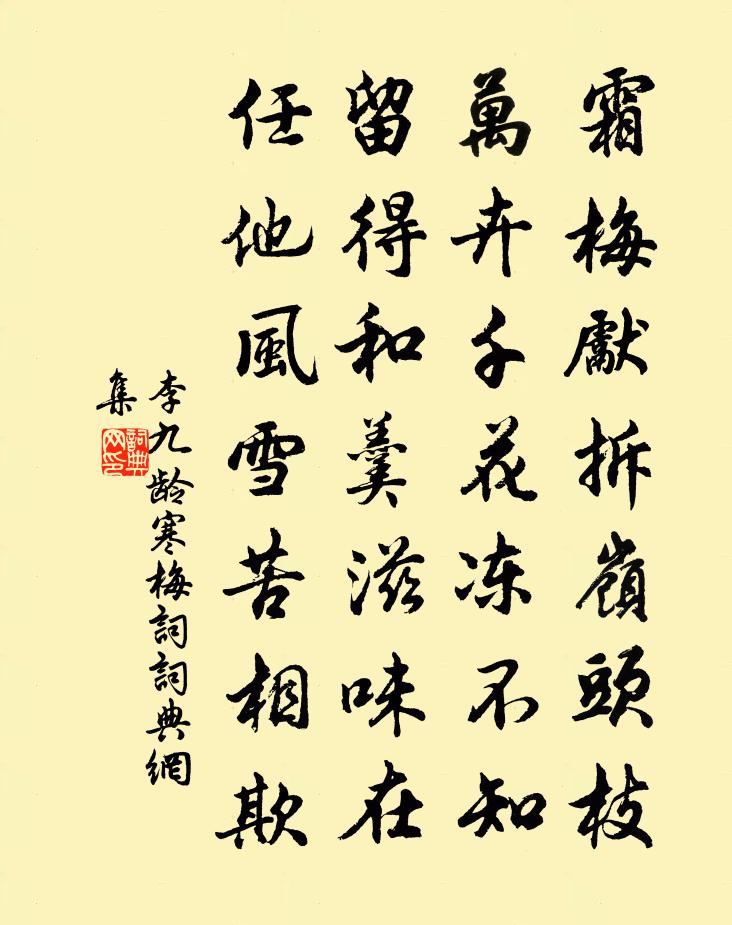 霜梅獻拆嶺頭枝
萬卉千花凍不知
留得和羹滋味在
任他風雪苦相欺
李九龄寒梅詞詞典網
集
詞典
网印